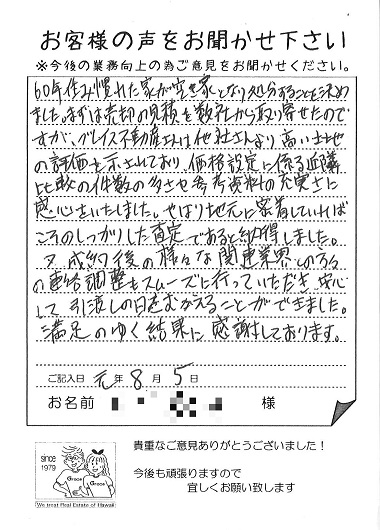 お客様の声をお聞かせ下さい
※今後の業務向上の為ご意見をお聞かせください。
60年住み慣れた家が空き家となり処分することを決め
ました。まずは売却の見積を数社から取り寄せたので
すが、グレイス不動産さんは他社さんより高い土地
の評価を示されており、価格設定に係る近隣
比較の件数の多さや参考資料の充実さに
感心をいたしました。やはり地元に密着していれば
こそのしっかりした査定であると納得しました。
又、成約後の様々な関連業界との
の連絡調整もスムーズに行っていただき、安心
して引渡しの日をむかえることができました。
満足のゆく結果に感謝しております。
ご記入日 元年8月5日
お名前 様
since
1979
Grace
Grace
We treat Real Estate of Hawaii
貴重なご意見ありがとうございました!
今後も頑張りますので
宜しくお願い致します